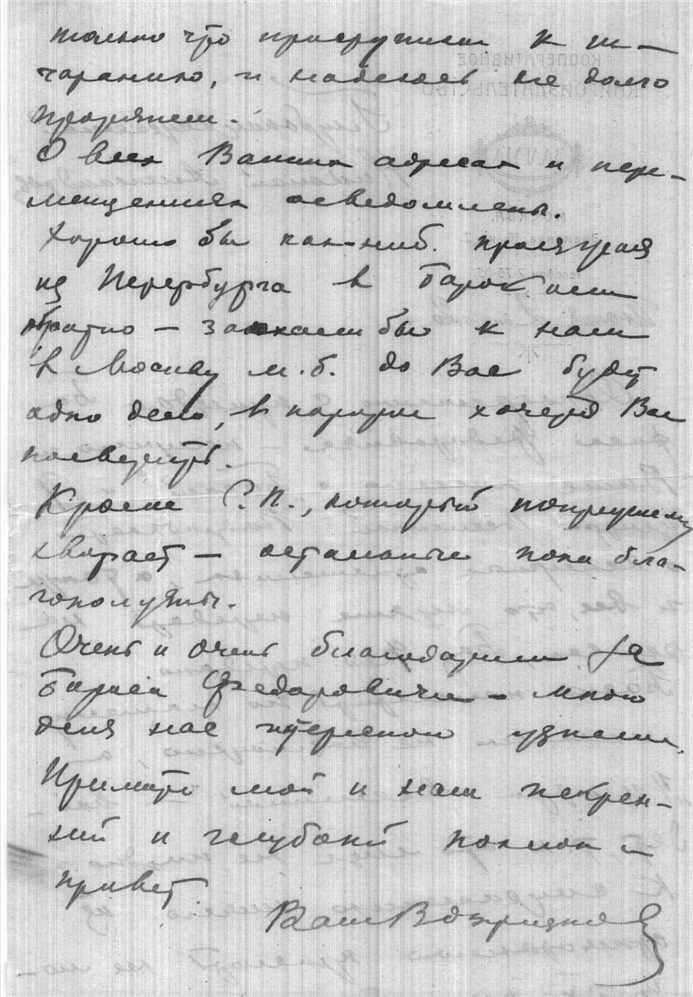 только что приступили к пе-
чатанию, и надеюсь не долго
протянем.
О всех Ваших адресах и пере-
мещениях осведомлены.
Хорошо бы как-ниб. проезжая
из Петербурга в Баро
обратно — заехали бы к нам
в Москву м. б. до Вас будет
одно дело, в котором хочется Вас
посвятить.
Кроме С. П., который попрежнему
хворает — остальные пока бла-
гополучны.
Очень и очень благодарим за
Бориса Федоровича — много
для нас интересного узнали.
Примите мой и наш искрен-
ний и глубокий поклон и
привет.
Ваш